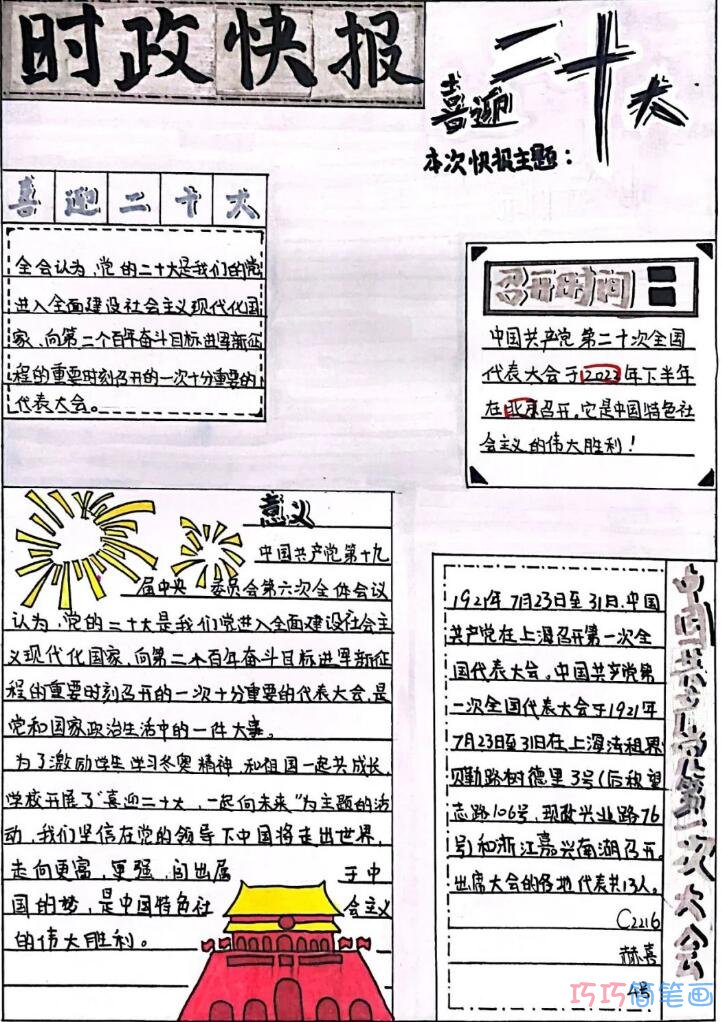 时政快报
喜迎二十大
本次快报主题：
喜迎二十大
全会认为、党的二十大是我们的党
进入全面建设社会主义现代化国
家、向第二个百年奋斗目标进军新征
程的重要时刻召开的一次十分重要的
代表大会。
召开时间
中国共产党第二十次全国
代表大会于2022年下半年
在北京召开。它是中国特色社
会主义的伟大胜利！
意义
中国共产党第十九
届中央 委员会第六次全体会议
认为、党的二十大是我们党进入全面建设社会主
义现代化国家、向第二个百年奋斗目标进军新征
程的重要时刻召开的一次十分重要的代表大会，是
党和国家政治生活中的一件大事。
为了激励学生学习冬奥精神，和祖国一起共成长，
学校开展了"喜迎二十大，一起向未来"为主题的活
动，我们坚信在党的领导下中国将走出世界，
走向更富，更强，闯出属 于中
国的势，是中国特色社 会主义
的伟大胜利。
1921年7月23日至31日，中国
共产党在上海召开第一次全
国代表大会。中国共产党第
一次全国代表大会于1921年
7月23日至31日在上海法租界
贝勒路树德里3号（后称望
志路106号，现改兴业路76
号）和浙江嘉兴南湖召开。
出席大会的各地代表共13人。
C2216
赫喜
4号
中国共产党第一次大会
巧巧简笔画